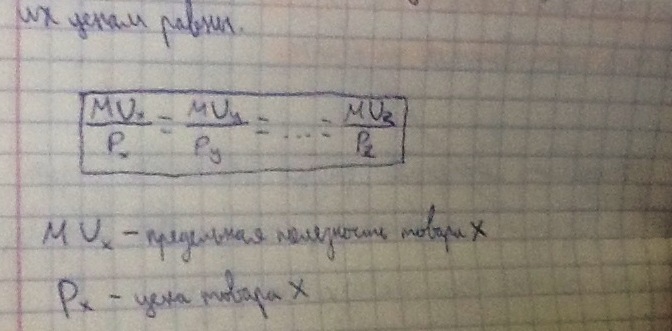 их ценам равны.
MUx/Px = MUy/Py = ... = MUz/Pz
MUx – предельная полезность товара X
Px – цена товара X